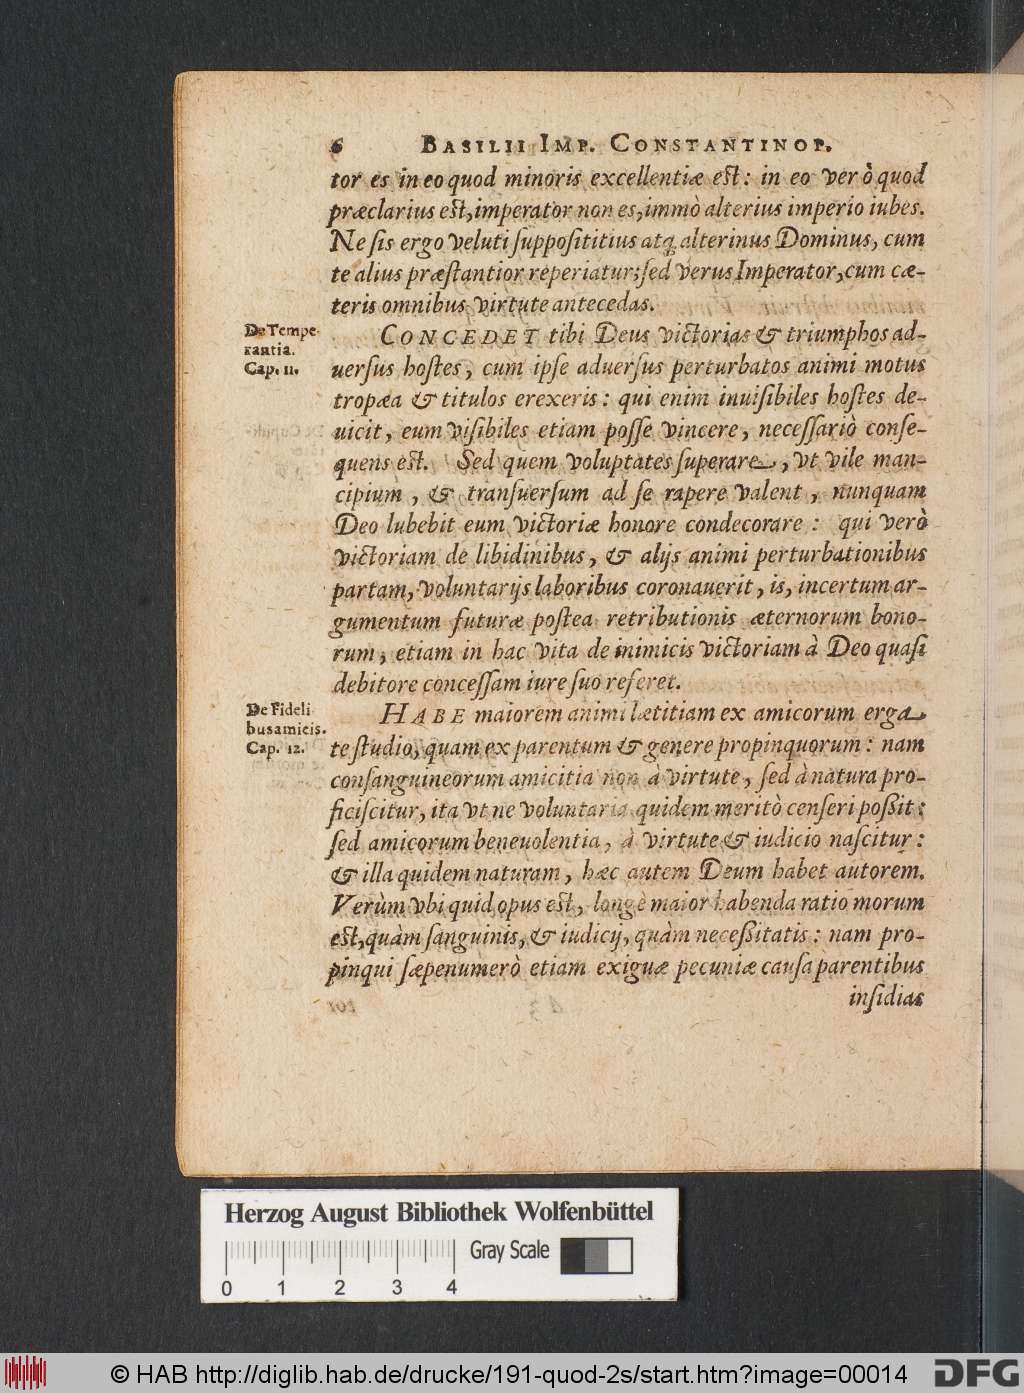 6 BASILII IMP. CONSTANTINOP.
tor es in eo quod minoris excellentiæ est: in eo verò quod
præclarius est, imperator non es, immò alterius imperio iubes.
Ne sis ergo veluti supposititius atq; alterinus Dominus, cum
te alius præstantior reperiatur; sed verus Imperator, cum cæ-
teris omnibus virtute antecedas.
De Tempe-
rantia.
Cap. 11.
CONCEDET tibi Deus victorias & triumphos ad-
uersus hostes, cum ipse aduersus perturbatos animi motus
tropæa & titulos erexeris: qui enim inuisibiles hostes de-
uicit, eum visibiles etiam posse vincere, necessariò conse-
quens est. Sed quem voluptates superare, vt vile man-
cipium, & transuersum ad se rapere valent, nunquam
Deo lubebit eum victoriæ honore condecorare: qui verò
victoriam de libidinibus, & alijs animi perturbationibus
partam, voluntarijs laboribus coronauerit, is, incertum ar-
gumentum futuræ postea retributionis æternorum bono-
rum, etiam in hac vita de inimicis victoriam à Deo quasi
debitore concessam iure suo referet.
De Fideli
bus amicis.
Cap. 12.
HABE maiorem animi lætitiam ex amicorum erga
te studio, quam ex parentum & genere propinquorum: nam
consanguineorum amicitia non à virtute, sed à natura pro-
ficiscitur, ita vt ne voluntaria quidem meritò censeri poßit:
sed amicorum beneuolentia, à virtute & iudicio nascitur:
& illa quidem naturam, hæc autem Deum habet autorem.
Verùm vbi quid opus est, longè maior habenda ratio morum
est, quàm sanguinis, & iudicij, quàm neceßitatis: nam pro-
pinqui sæpenumerò etiam exiguæ pecuniæ causa parentibus
insidias
Herzog August Bibliothek Wolfenbüttel
Gray Scale
0 1 2 3 4
© HAB http://diglib.hab.de/drucke/191-quod-2s/start.htm?image=00014
DFG